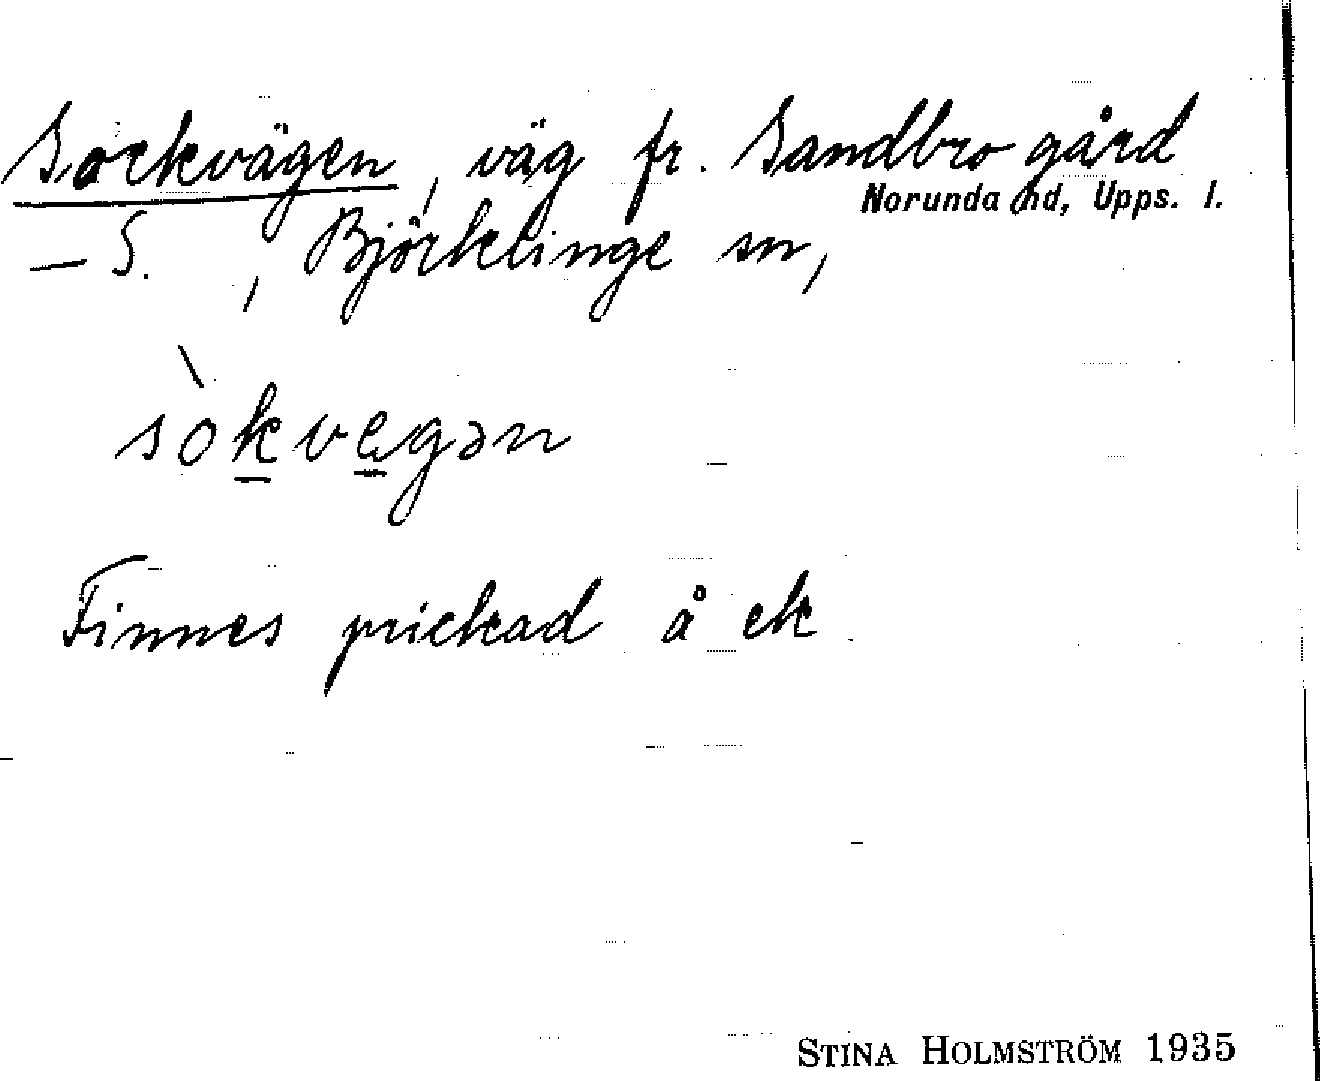 Sockvägen, väg fr. Sandbro gård
Norunda hd, Upps. l.
– S. , Björklinge sn,
sòkvegən
Finnes prickad å ek
STINA HOLMSTRÖM 1935